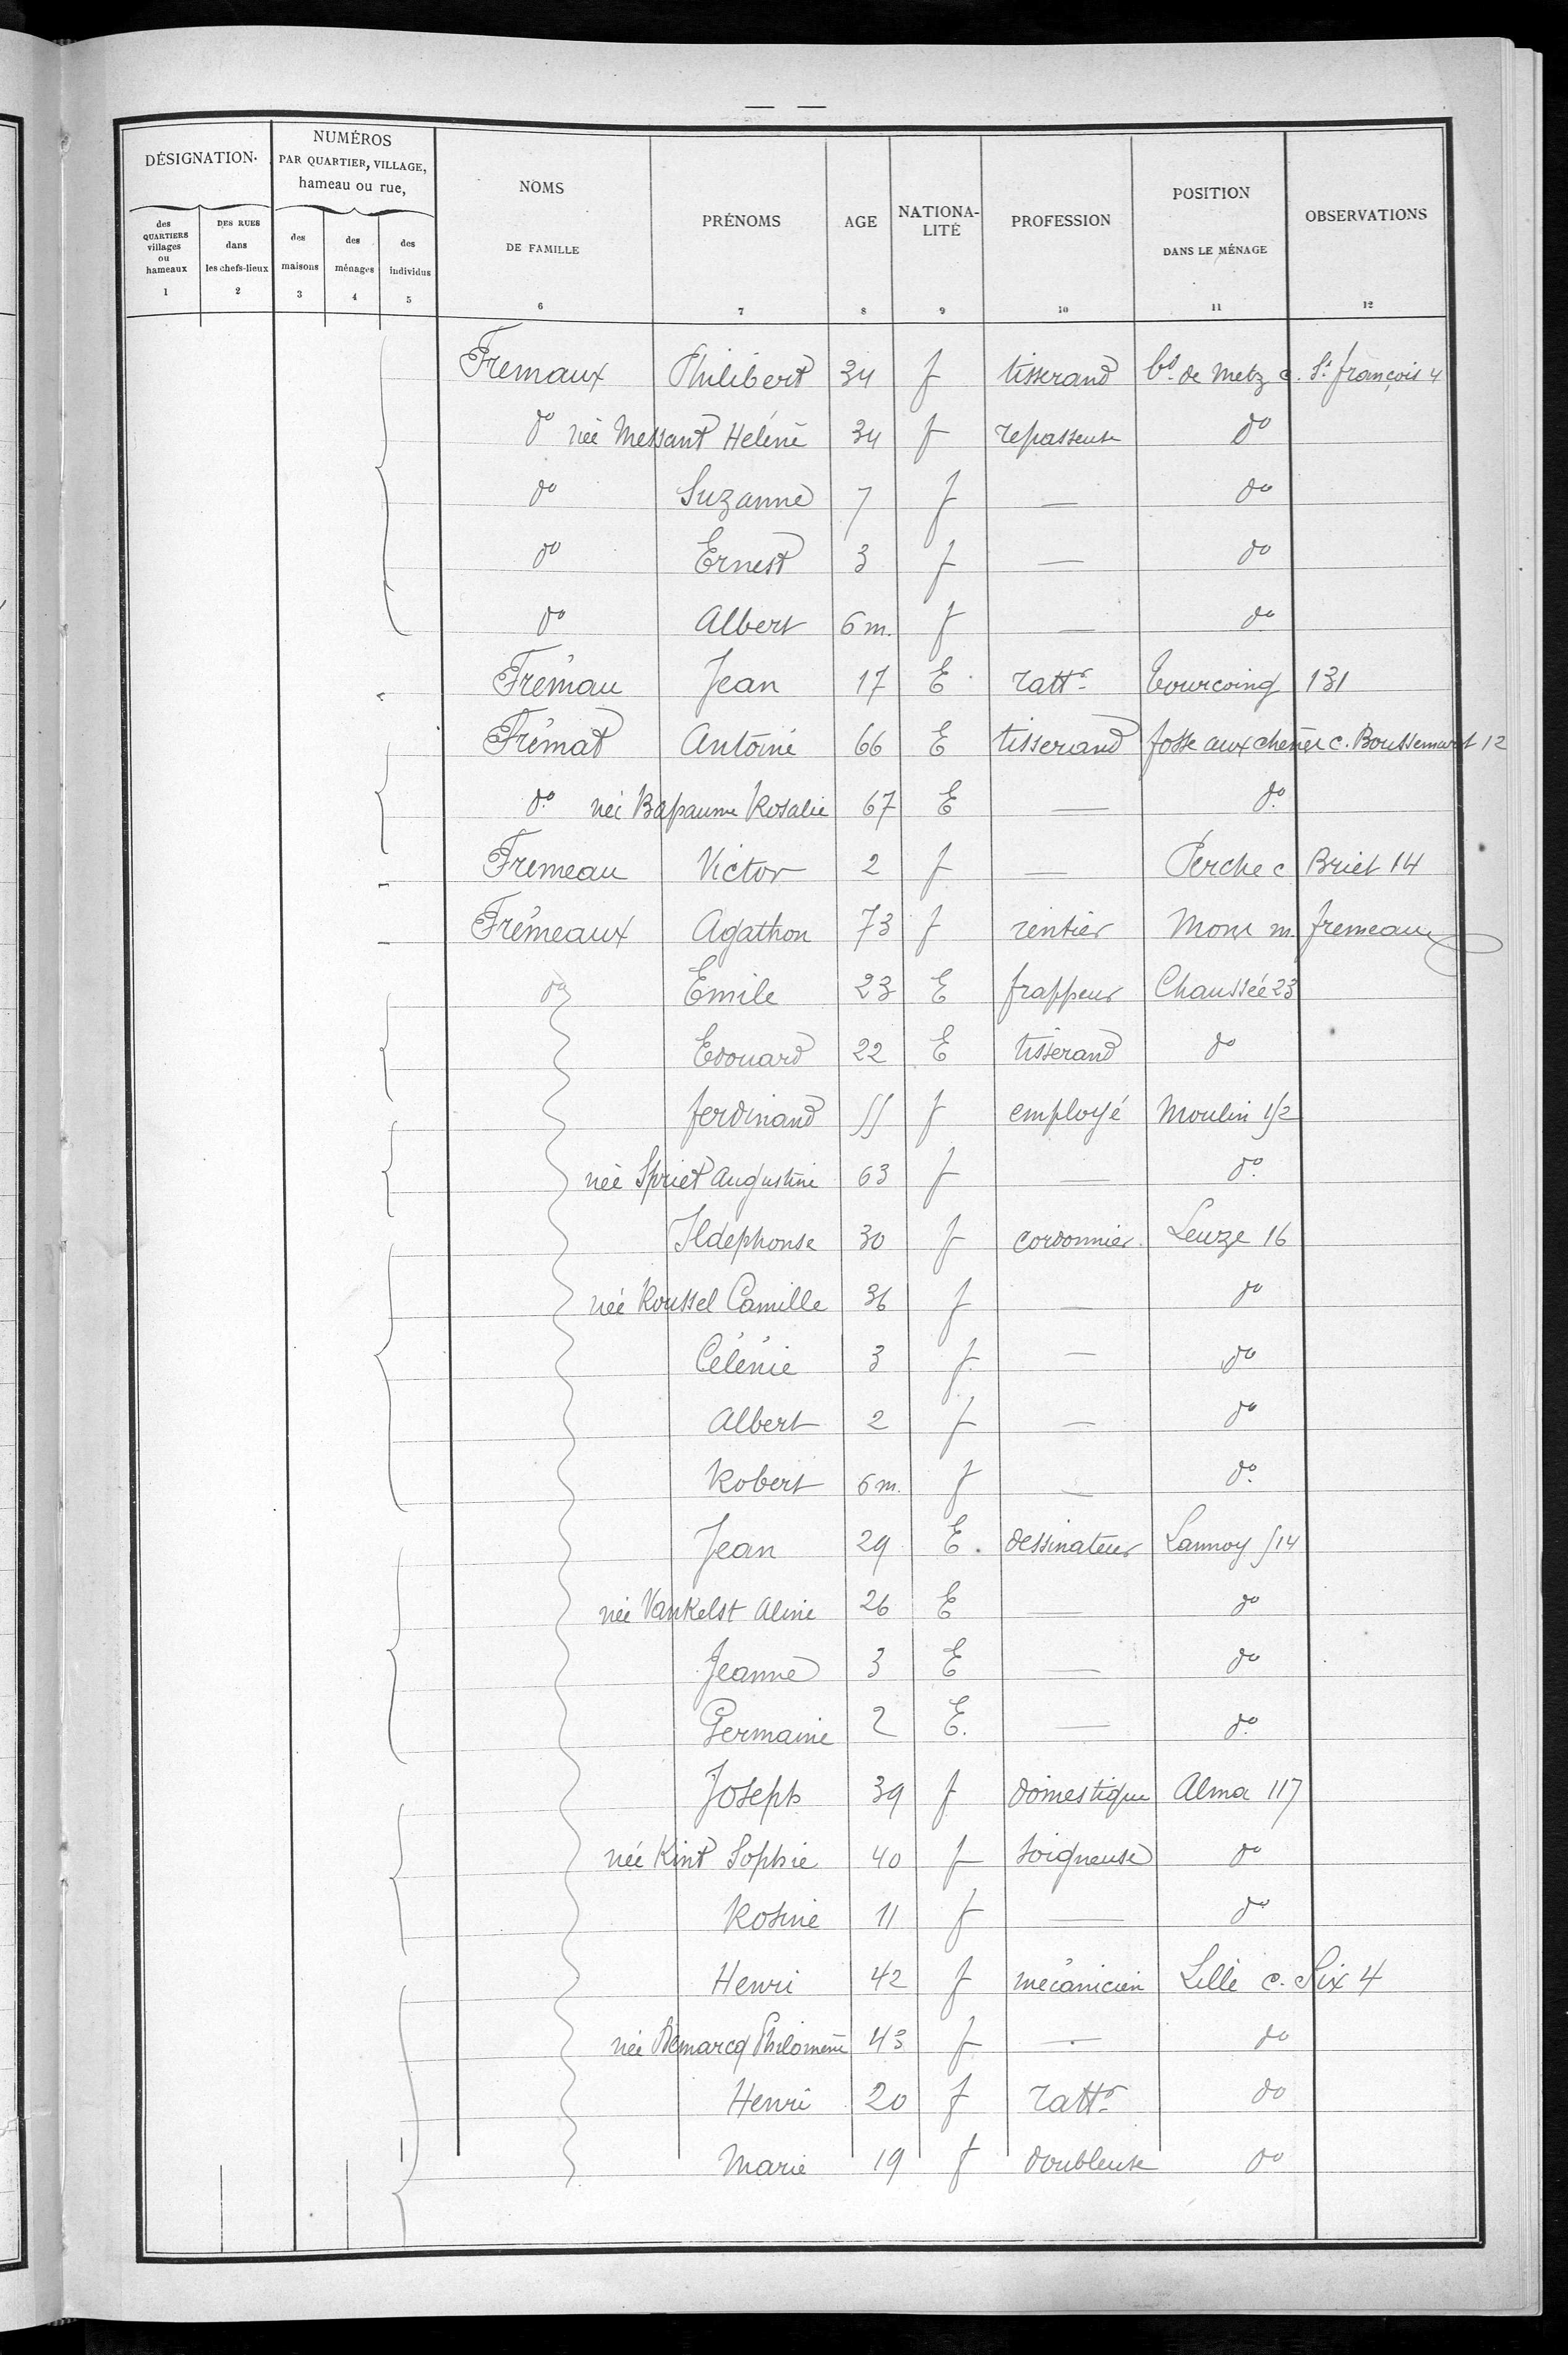 — —
DÉSIGNATION
NUMÉROS
PAR QUARTIER, VILLAGE,
hameau ou rue,
NOMS
DE FAMILLE
PRÉNOMS
AGE
NATIONA-
LITÉ
PROFESSION
POSITION
DANS LE MÉNAGE
OBSERVATIONS
des
QUARTIERS
villages
ou
hameaux
DES RUES
dans
les chefs-lieux
des
maisons
des
ménages
des
individus
1 2 3 4 5 6 7 8 9 10 11 12
Fremaux Philibert 34 f tisserand bd. de Metz c. St. françois 4
do née Messant Heléne 34 f repasseuse do
do Suzanne 7 f — do
do Ernest 3 f — do
do Albert 6 m. f — do
Frémau Jean 17 E ratt.r tourcoing 131
Frémat Antoine 66 E tisserand fosse aux chenes c. Boussemart 12
do née Bapaume Rosalie 67 E — do
Fremeau Victor 2 f — Perche c Briet 14
Frémeaux Agathon 73 f rentier Mons m. fremeaux
do Emile 23 E frappeur Chaussée 23
Edouard 22 E tisserand do
ferdinand 55 f employé Moulin 152
née Spriet Augustine 63 f — do
Ildephonse 30 f cordonnier Leuze 16
née Roussel Camille 36 f — do
Célénie 3 f — do
Albert 2 f — do
Robert 6 m. f — do
Jean 29 E. dessinateur Lannoy 514
née Vankelst Aline 26 E — do
Jeanne 3 E — do
Germaine 2 E. — do
Joseph 39 f domestique Alma 117
née Kint Sophie 40 f soigneuse do
Rosine 11 f — do
Henri 42 f mécanicien Lille c. Six 4
née Demarcq Philomène 43 f — do
Henri 20 f ratt.r do
Marie 19 f doubleuse do